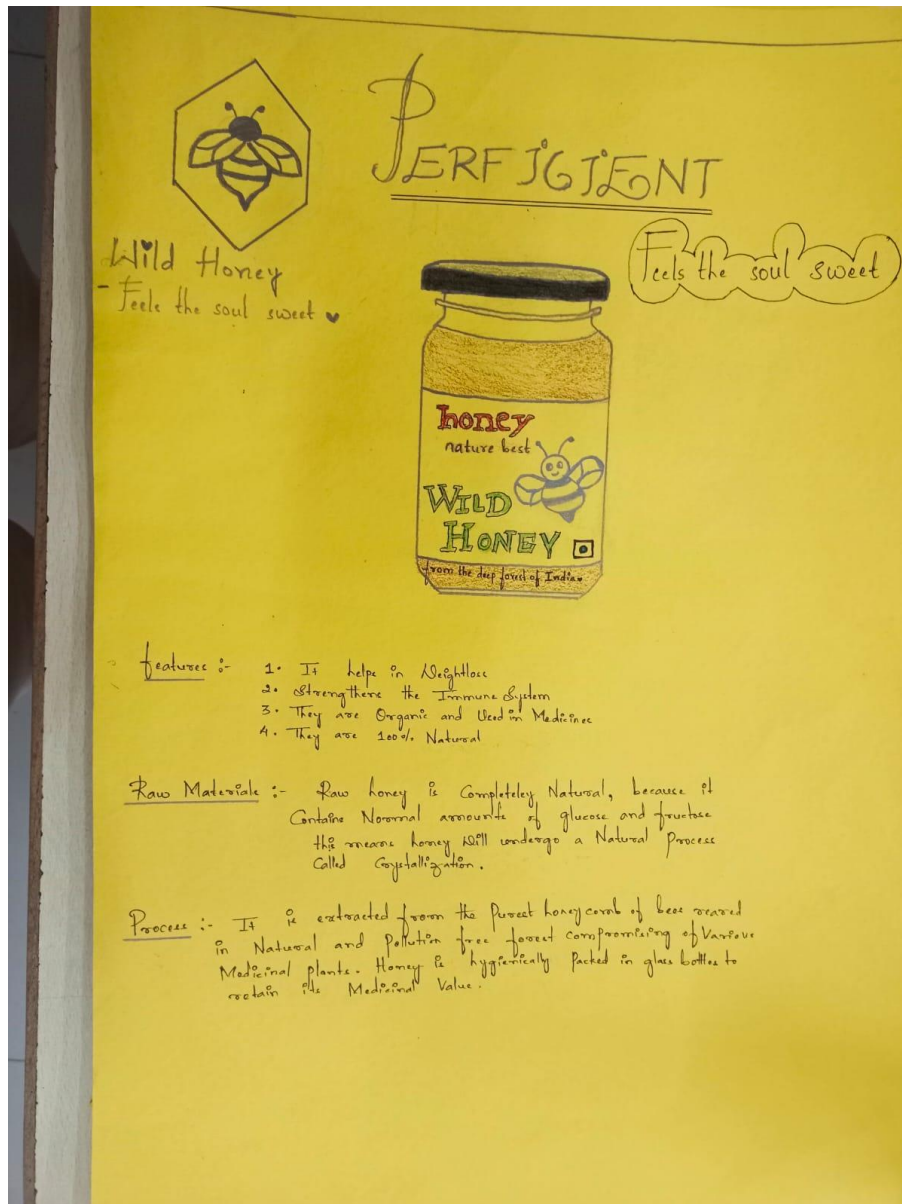 PERFICIENT
Wild Honey
- Feels the soul sweet
Feels the soul sweet
honey
nature best
WILD
HONEY
from the deep forest of India
Features :-
1. It helps in Weightloss
2. Strengthens the Immune System
3. They are Organic and Used in Medicines
4. They are 100% Natural
Raw Materials :- Raw honey is Completeley Natural, because it
Contains Normal amounts of glucose and fructose
this means honey Will undergo a Natural Process
Called Crystallization.
Process :- It is extracted from the Purest honeycomb of bees reared
in Natural and Pollution free forest compromising of Various
Medicinal plants. Honey is hygienically Packed in glass bottles to
retain its Medicinal Value.